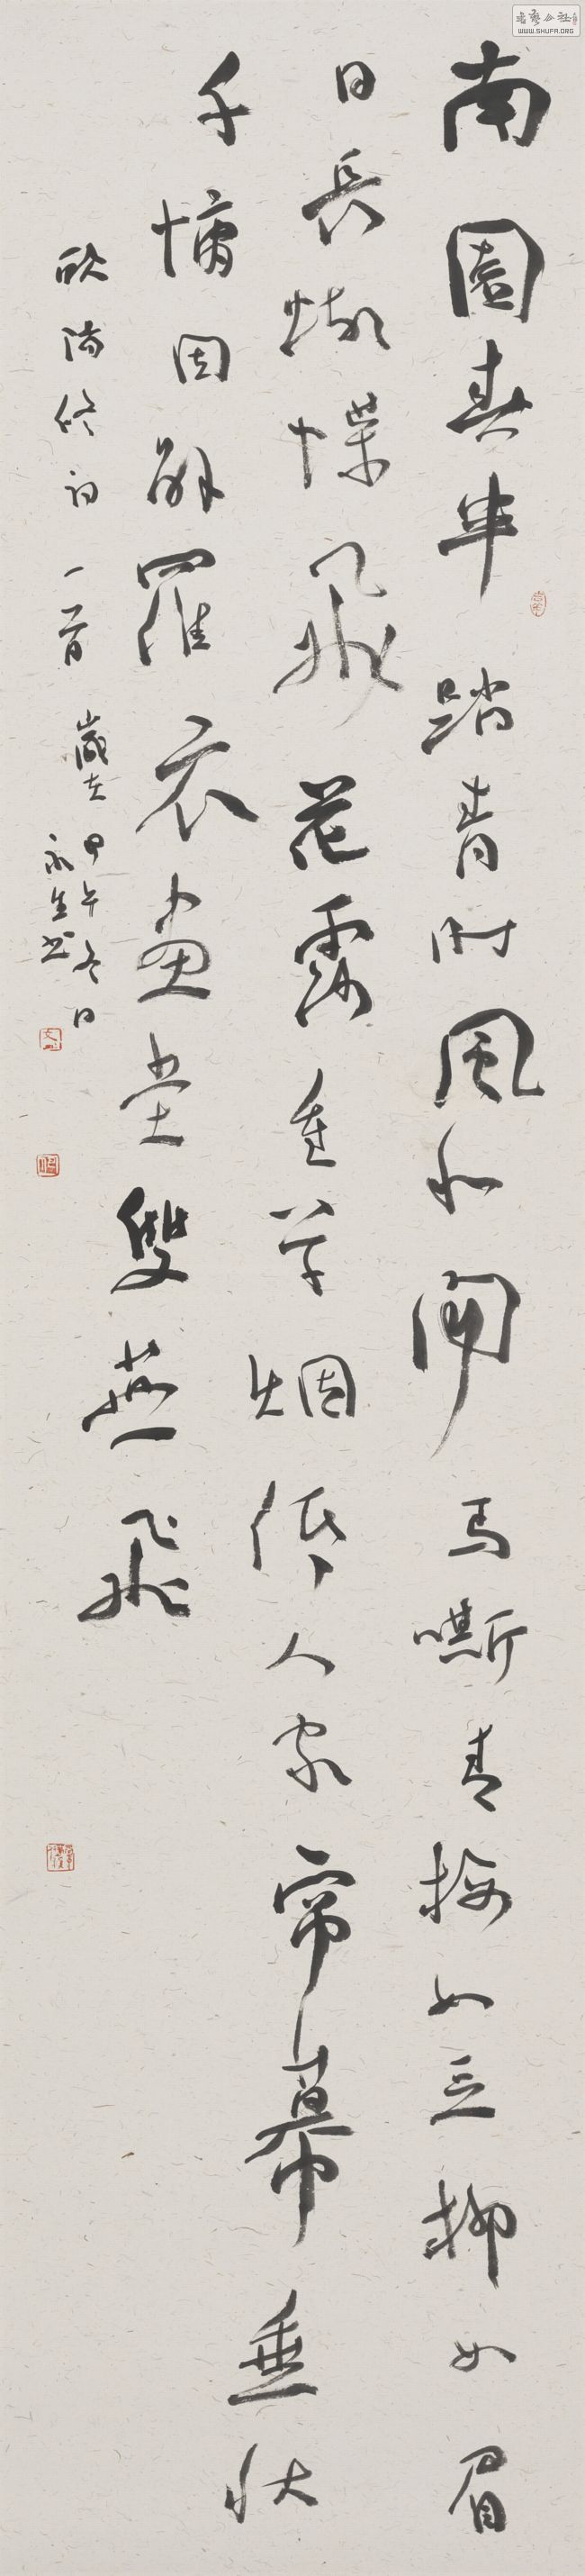 南園春半踏青时風和闻马嘶青梅如豆柳如眉
日長蝴蝶飛花露重草烟低人家帘幕垂秋
千慵困解羅衣畫堂雙燕飛
欧陽修詞一首
歲在甲午冬日
永生书
书艺公社
WWW.SHUFA.ORG